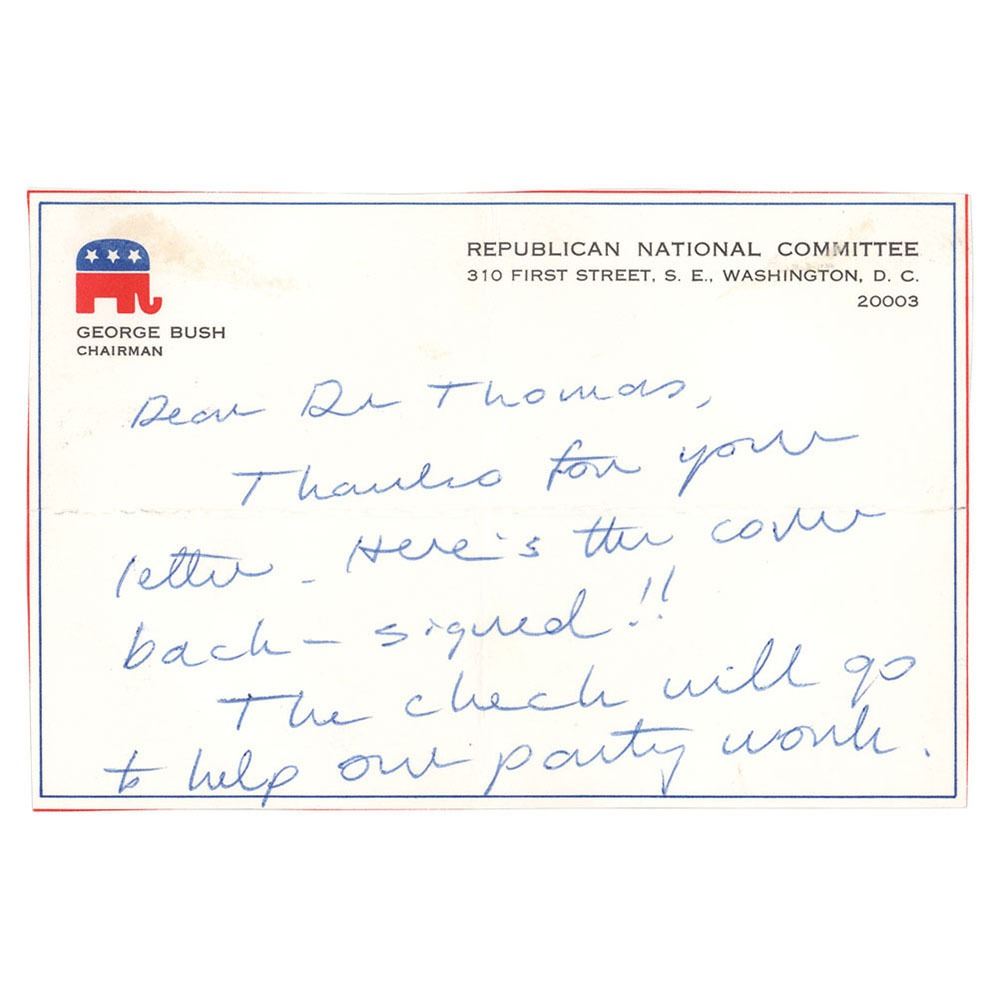 REPUBLICAN NATIONAL COMMITTEE
310 FIRST STREET, S. E., WASHINGTON, D. C.
20003
GEORGE BUSH
CHAIRMAN
Dear Dr Thomas,
Thanks for your
letter - Here's the cover
back - signed!!
The check will go
to help our party work.